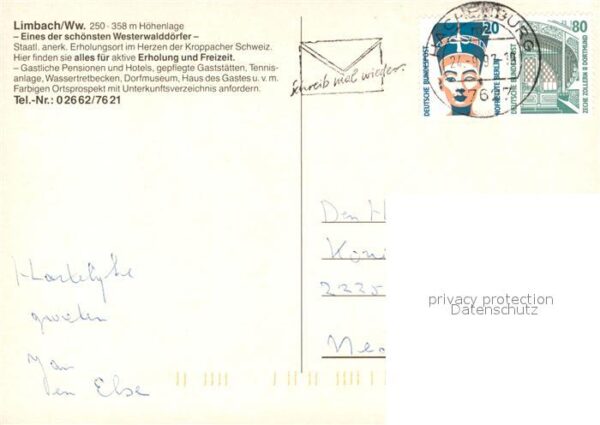 Limbach/Ww. 250 - 358 m Höhenlage
– Eines der schönsten Westerwalddörfer –
Staatl. anerk. Erholungsort im Herzen der Kroppacher Schweiz.
Hier finden sie alles für aktive Erholung und Freizeit.
– Gastliche Pensionen und Hotels, gepflegte Gaststätten, Tennis-
anlage, Wassertretbecken, Dorfmuseum, Haus des Gastes u. v. m.
Farbigen Ortsprospekt mit Unterkunftsverzeichnis anfordern.
Tel.-Nr.: 0 26 62 / 76 21
Schreib mal wieder.
HACHENBURG
20
DEUTSCHE BUNDESPOST
NOFRETETE BERLIN
80
DEUTSCHE BUNDESPOST
ZECHE ZOLLERN II DORTMUND
Den H
Kön
privacy protection
Datenschutz
Hartelyke
groeten
Jan
Den Else